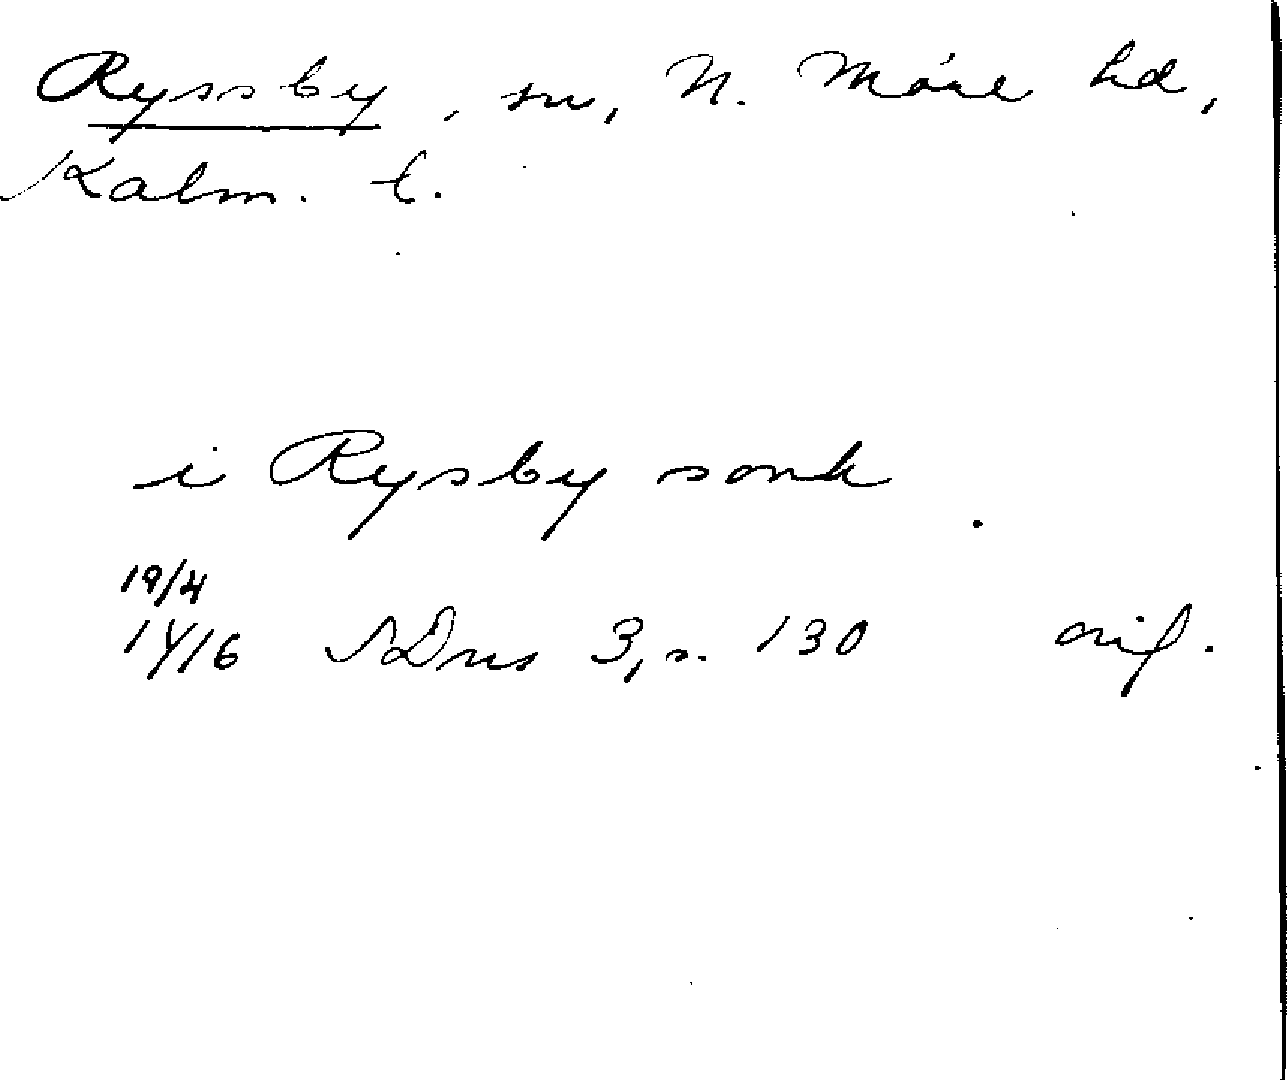 Ryssby, sn, N. Möre hd,
Kalm. l.
i Rysby sonk
19/4
1416 SDns 3, s. 130 orig.